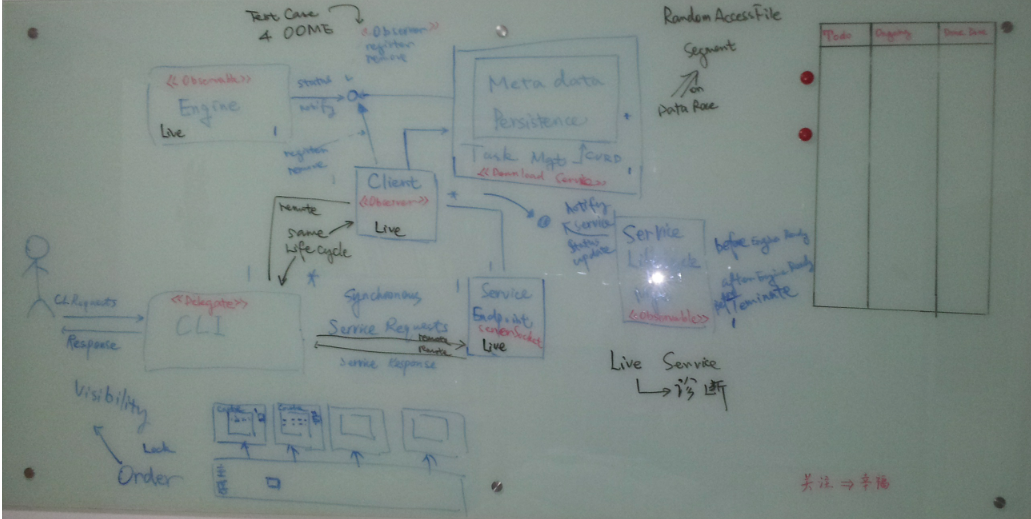 Test Case
4 OOME
<<Observer>>
register
remove
RandomAccessFile
Segment
on
Data Race
Todo
Ongoing
<<Observable>>
Engine
Live
status
notify
register
remove
Meta data
Persistence
Task Mgt
CURD
<<Download Service>>
Client
<<Observer>>
Live
remote
same
Life Cycle
Notify
service
status
update
Service
<<Observable>>
before Engine Ready
after Engine Ready
CLI Requests
Response
<<Delegate>>
CLI
Synchronous
Service Requests
remote
remote
Service Response
Service
Endpoint
ServerSocket
Live
Live Service
诊断
Visibility
Lock
Order
Cache
Cache
主存
关注 ⇒ 幸福